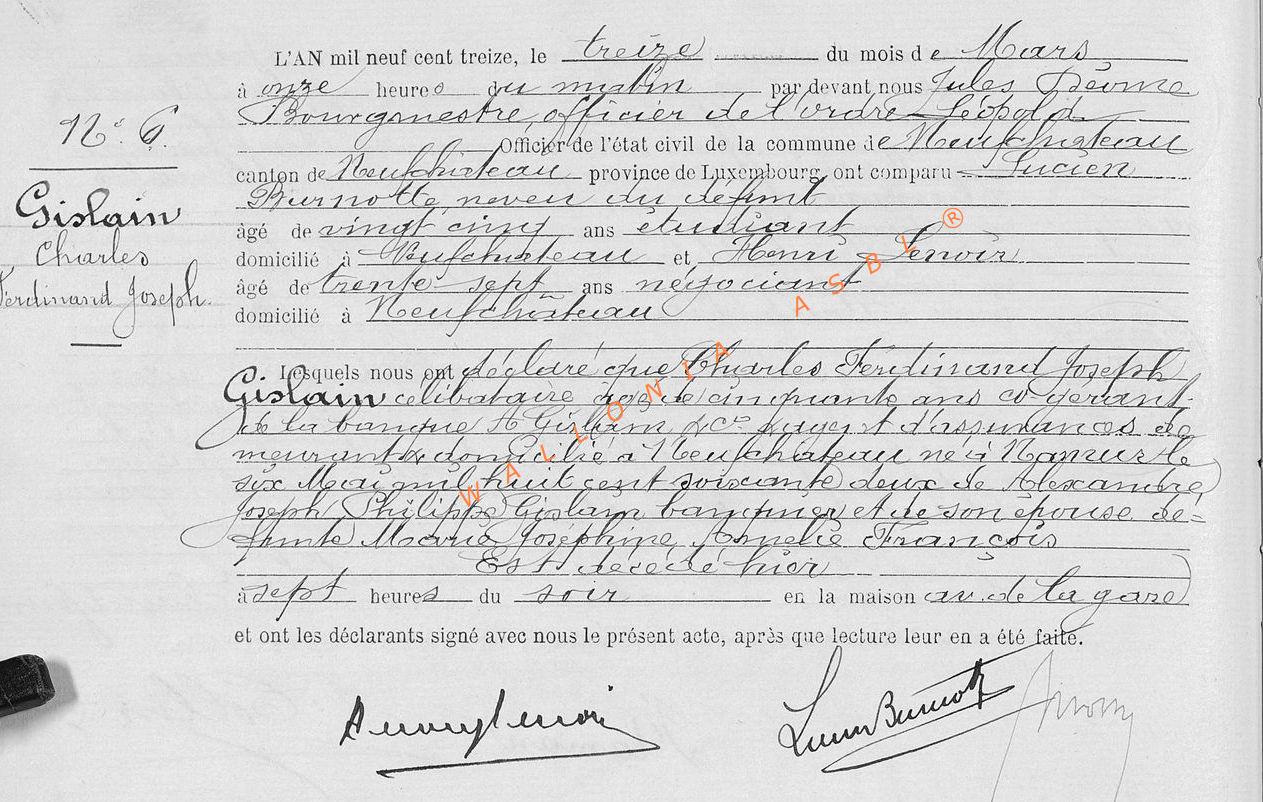 N° 6.
Gislain
Charles
Ferdinand Joseph.
L'AN mil neuf cent treize, le treize du mois de Mars
à onze heures du matin par devant nous Jules
Bourgmestre, officier de l'ordre Léopold
Officier de l'état civil de la commune de Neufchâteau
canton de Neufchâteau province de Luxembourg, ont comparu Lucien
Burnotte, neveu du défunt
âgé de vingt cinq ans étudiant
domicilié à Neufchâteau et Henri Lenoir
âgé de trente-sept ans négociant
domicilié à Neufchâteau
Lesquels nous ont déclaré que Charles Ferdinand Joseph
Gislain célibataire âgé de cinquante ans co gérant
de la banque A Gislain & Cie & agent d'assurances de
meurant & domicilié à Neufchateau né à Namur le
six Mai mil huit cent soixante deux de Alexandre
Joseph Philippe Gislain banquier et de son épouse dé=
funte Marie Joséphine Amélie François
Est décédé hier
à sept heures du soir en la maison av. de la gare
et ont les déclarants signé avec nous le présent acte, après que lecture leur en a été faite.
Lucien Burnotte
WALLONIA ASBL®